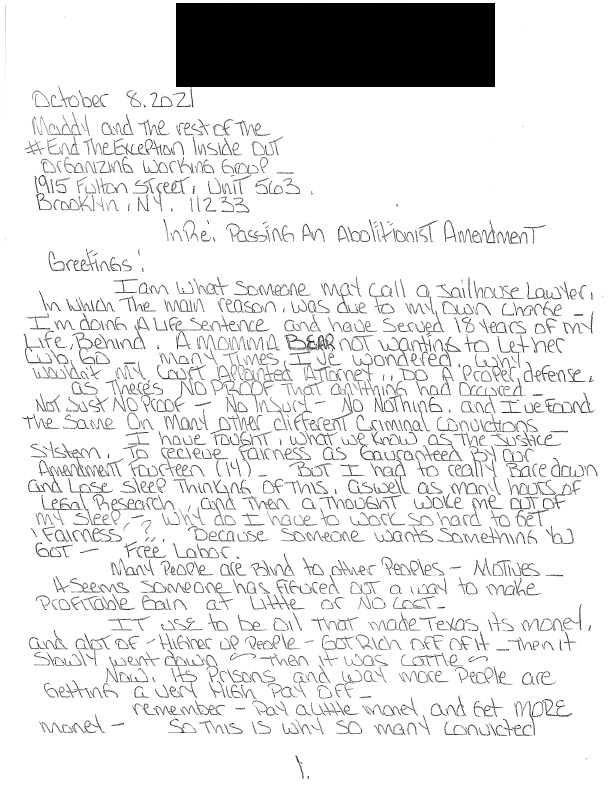 October 8. 2021
Maddy and the rest of the
#EndTheException Inside Out
Organizing Working Group —
1915 Fulton Street, Unit 563.
Brooklyn, NY. 11233
InRe: Passing An Abolitionist Amendment
Greetings!
I am what someone may call a Jailhouse Lawyer,
In which the main reason, was due to my own charge –
I'm doing A Life sentence and have served 18 years of my
Life, Behind. A MOMMA BEAR not wanting to Let her
Cub, GO — many times I've wondered, Why
wouldn't my Court Appointed Attorney,, Do A Proper, defense,
as there's NO PROOF that anything had occured –
Not Just No Proof – No Insury – No Nothing, and I've found
the same On many other different Criminal Convictions –
I have fought, what we know as the Justice
System, To recieve Fairness as Gauranteed By our
Amendment Fourteen (14) – But I had to really Bare down
and Lose sleep thinking of this, aswell as many hours of
Legal Research,, and then a thought woke me out of
my sleep – Why do I have to work so hard to get
'Fairness'?,. Because someone wants something You
Got — Free Labor.
Many People are Blind to other Peoples – Motives –
It seems someone has figured out a way to make
Profitable Gain at Little or No Cost –
IT use to be Oil that made Texas its money,
and alot of – Higher up People – Got Rich off of it – then it
slowly went down ~ then it was cattle ~
Now, its Prisons and way more People are
getting a very High Pay Off –
remember – Pay a little money and Get MORE
money – So this is why so many convicted
1.